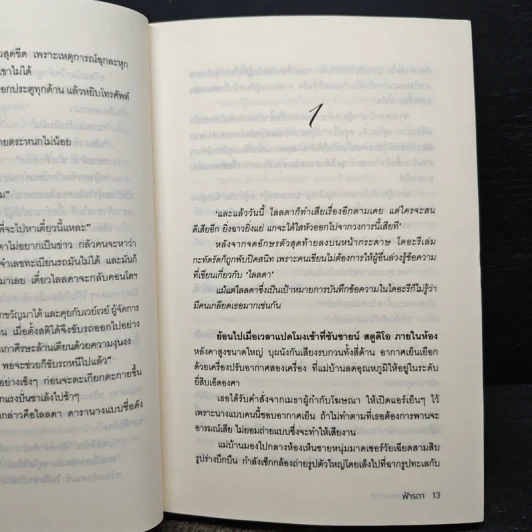 วสุดขีด เพราะเหตุการณ์ฉุกละหุก
เขาไม่ได้
อกประตูทุกด้าน แล้วหยิบโทรศัพท์
ายตระหนกไม่น้อย
ม”
พี่จะไปหาเดี๋ยวนี้แหละ”
ดาไม่อยากเป็นข่าว กลัวคนจะหาว่า
จำเลขทะเบียนรถมันไม่ได้
มาเลย เดี๋ยวไลลดาจะกลับคอนโดฯ
กขวัญมาได้ และคุยกับเวย์เวย์ ผู้จัดการ
เมื่อตั้งสติได้จึงขับรถออกไปอย่าง
เกาศีรษะล้านเตียนด้วยความงุนงง
พอจะช่วยก็ขับรถหนีไปแล้ว”
อย่างเซ็งๆ ก่อนจะตะเกียกตะกายขึ้น
แรงปั่นซาเล้งไปช้าๆ
กล่าวคือไลลดา ดารานางแบบชื่อดัง
1
‘และแล้ววันนี้ ไลลดาก็ทำเสียเรื่องอีกตามเคย แต่ใครจะสน
ดีเสียอีก ยิ่งฉาวยิ่งแย่ แกจะได้ใสหัวออกไปจากวงการนี้เสียที’
หลังจากจดอักษรตัวสุดท้ายลงบนหน้ากระดาษ ไดอะรีเล่ม
กะทัดรัดก็ถูกพับปิดสนิท เพราะคนเขียนไม่ต้องการให้ผู้อื่นล่วงรู้ข้อความ
ที่เขียนเกี่ยวกับ ‘ไลลดา’
แม้แต่ไลลดาซึ่งเป็นเป้าหมายการบันทึกข้อความในไดอะรีก็ไม่รู้ว่า
มีคนเกลียดเธอมากเช่นกัน
ย้อนไปเมื่อเวลาแปดโมงเช้าที่ซันชายน์ สตูดิโอ ภายในห้อง
หลังคาสูงขนาดใหญ่ บุผนังกันเสียงรบกวนทั้งสี่ด้าน อากาศเย็นเยือก
ด้วยเครื่องปรับอากาศสองเครื่อง ที่แม่บ้านลดอุณหภูมิให้อยู่ในระดับ
ยี่สิบเอ็ดองศา
เธอได้รับคำสั่งจากเมธาผู้กำกับโฆษณา ให้เปิดแอร์เย็นๆ ไว้
เพราะนางแบบคนนี้ชอบอากาศเย็น ถ้าไม่ทำตามที่เธอต้องการพานจะ
อารมณ์เสีย ไม่ยอมถ่ายแบบซึ่งจะทำให้เสียงาน
แม่บ้านมองไปกลางห้องเห็นชายหนุ่มมาดเซอร์วัยเฉียดสามสิบ
รูปร่างปึกปึน กำลังเช็กกล้องถ่ายรูปตัวใหญ่โดยเล็งไปที่ฉากรูปทะเลกับ
ฟ้ารดา 13